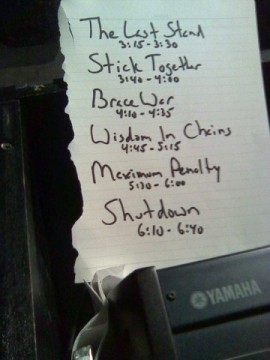 The Last Stand
3:15-3:30
Stick Together
3:40-4:00
Brace War
4:10-4:35
Wisdom In Chains
4:45-5:15
Maximum Penalty
5:30-6:00
Shutdown
6:10-6:40
YAMAHA